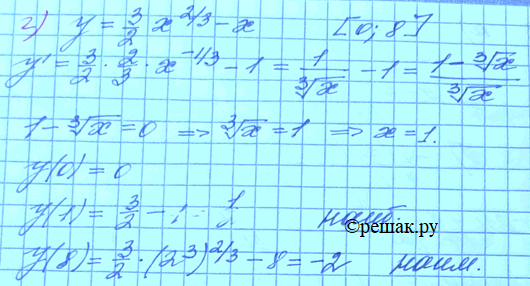 г) y = 3/2 x^(2/3) - x [0; 8]
y' = 3/2 · 2/3 · x^(-1/3) - 1 = 1/∛x - 1 = (1 - ∛x)/∛x
1 - ∛x = 0 => ∛x = 1 => x = 1.
y(0) = 0
y(1) = 3/2 - 1 = наиб.
©решак.ру
y(8) = 3/2 · (2³)^(2/3) - 8 = -2 наим.